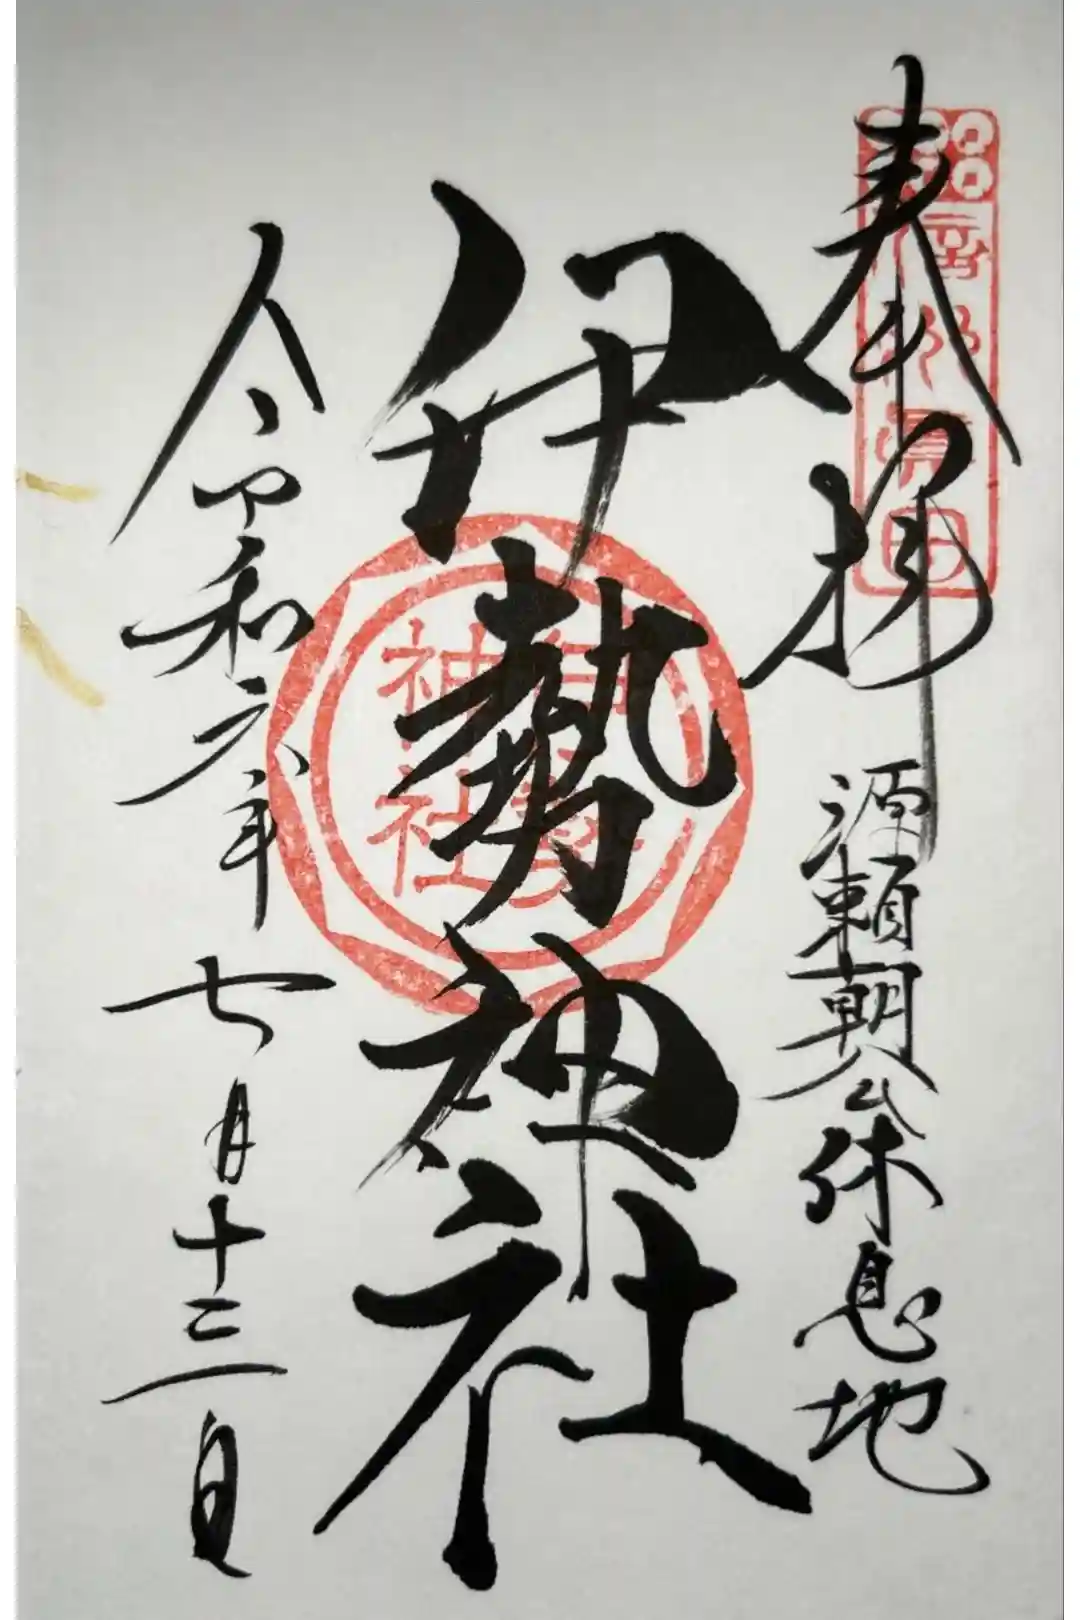 奉拝
源頼朝公休息地
伊勢神社
伊勢
神社
令和六年七月十三日